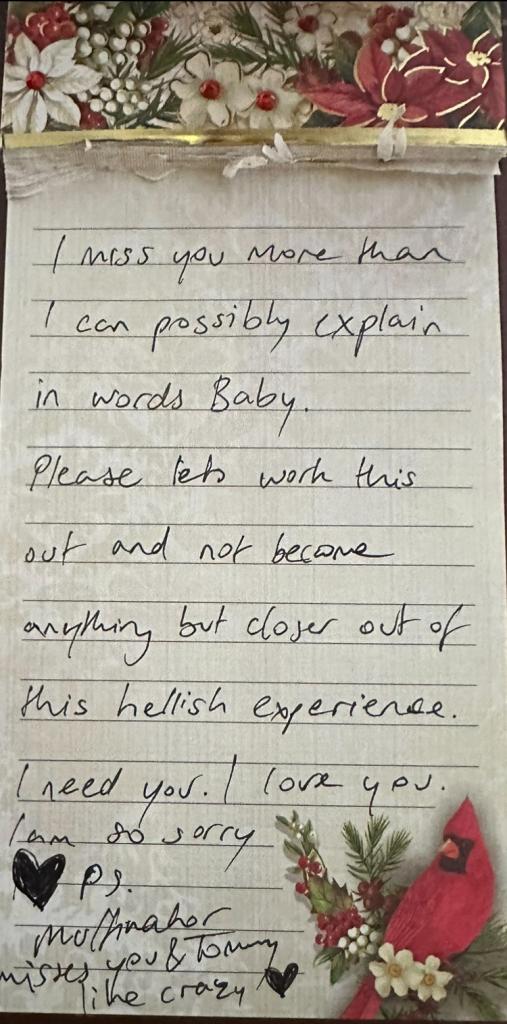 I miss you more than
I can possibly explain
in words Baby.
Please lets work this
out and not become
anything but closer out of
this hellish experience.
I need you. I love you.
I am so sorry
ps.
Muffinator
misses you & Tommy
like crazy